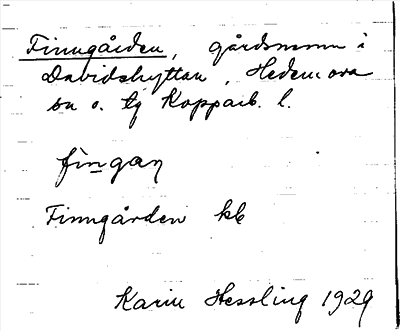 Finngården, gårdsnamn i
Davidshyttan, Hedemora
sn o. tg Kopparb. l.
fìngan
Finngården kb
Karin Hessling 1929